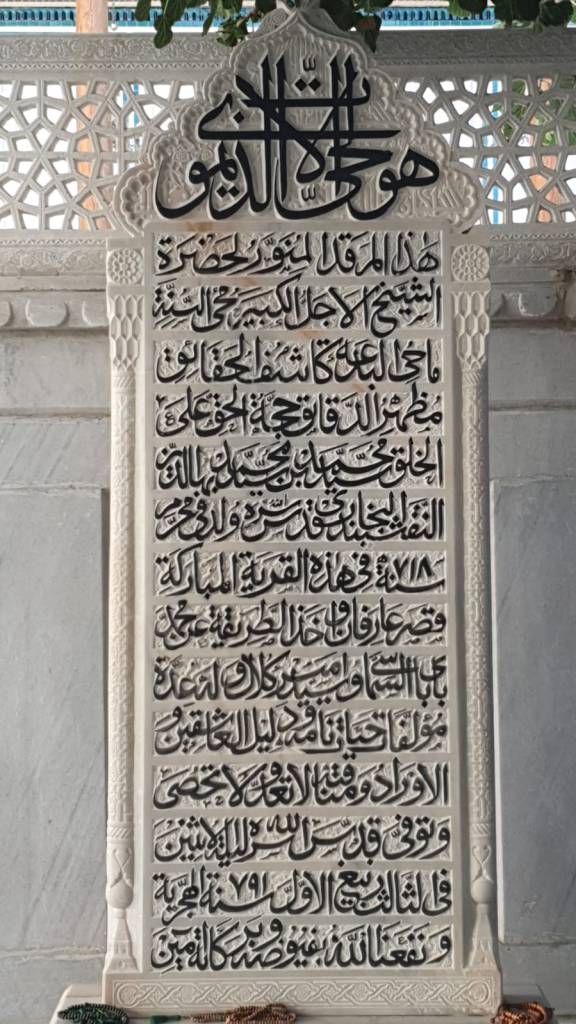 هو الحي الذي لا يموت
هذا المرقد المنور لحضرة
الشيخ الاجل الكبير محي السنة
ماحي البدعة كاشف الحقائق
مظهر الدقائق حجة الحق على
الخلق سيد محمد بن سيد محمد بهاء الدين
النقشبند البخاري قدس سره ولد في محرم
سنة ٧١٨ في هذه القرية المباركة
قصر عارفان واخذ الطريقة عن محمد
بابای السماسي وسيد امير كلال وله عدة
مؤلفات حياة نامه ودليل العاشقين و
الاوراد ومناقبه لا تعد ولا تحصى
وتوفي قدس الله سره ليلة الاثنين
في الثالث ربيع الاول سنة ٧٩١ الهجرية
ونفعنا الله بفيوضه وبركاته آمين